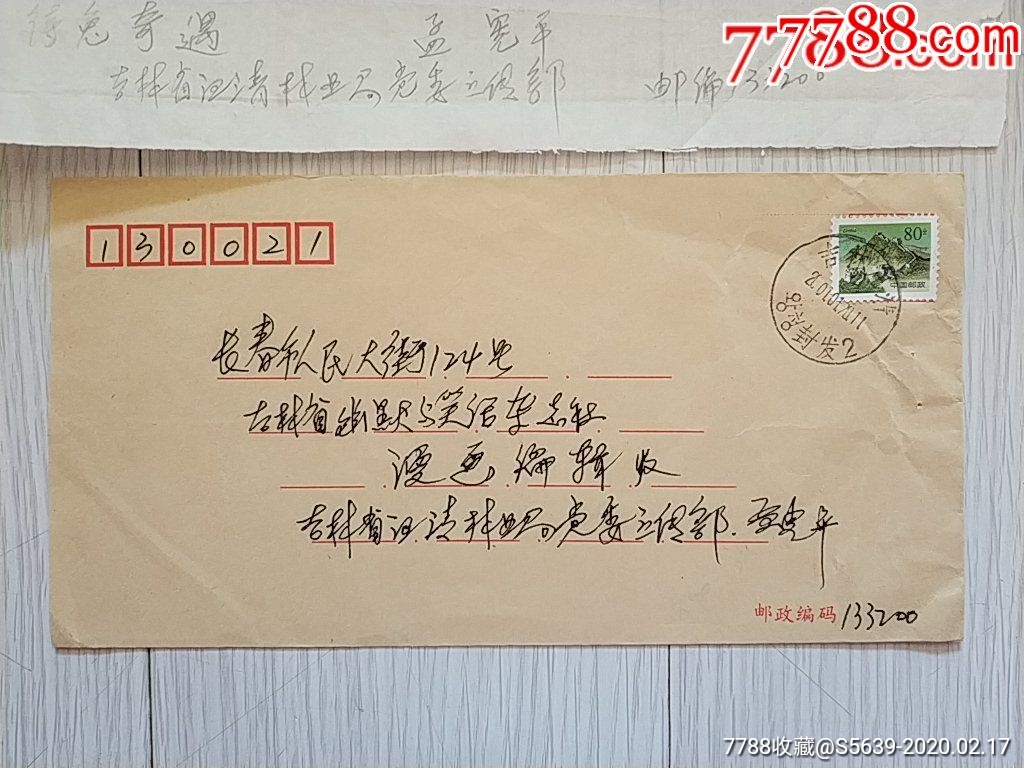 77788.com
待兔奇遇 孟宪平
吉林省汪清林业局党委宣传部 邮编133200
130021
80分
中国邮政
吉林
封发2
长春市人民大街124号
吉林省幽默与笑话杂志社
漫画编辑收
吉林省汪清林业局党委宣传部 孟宪平
邮政编码 133200
7788收藏@S5639-2020.02.17